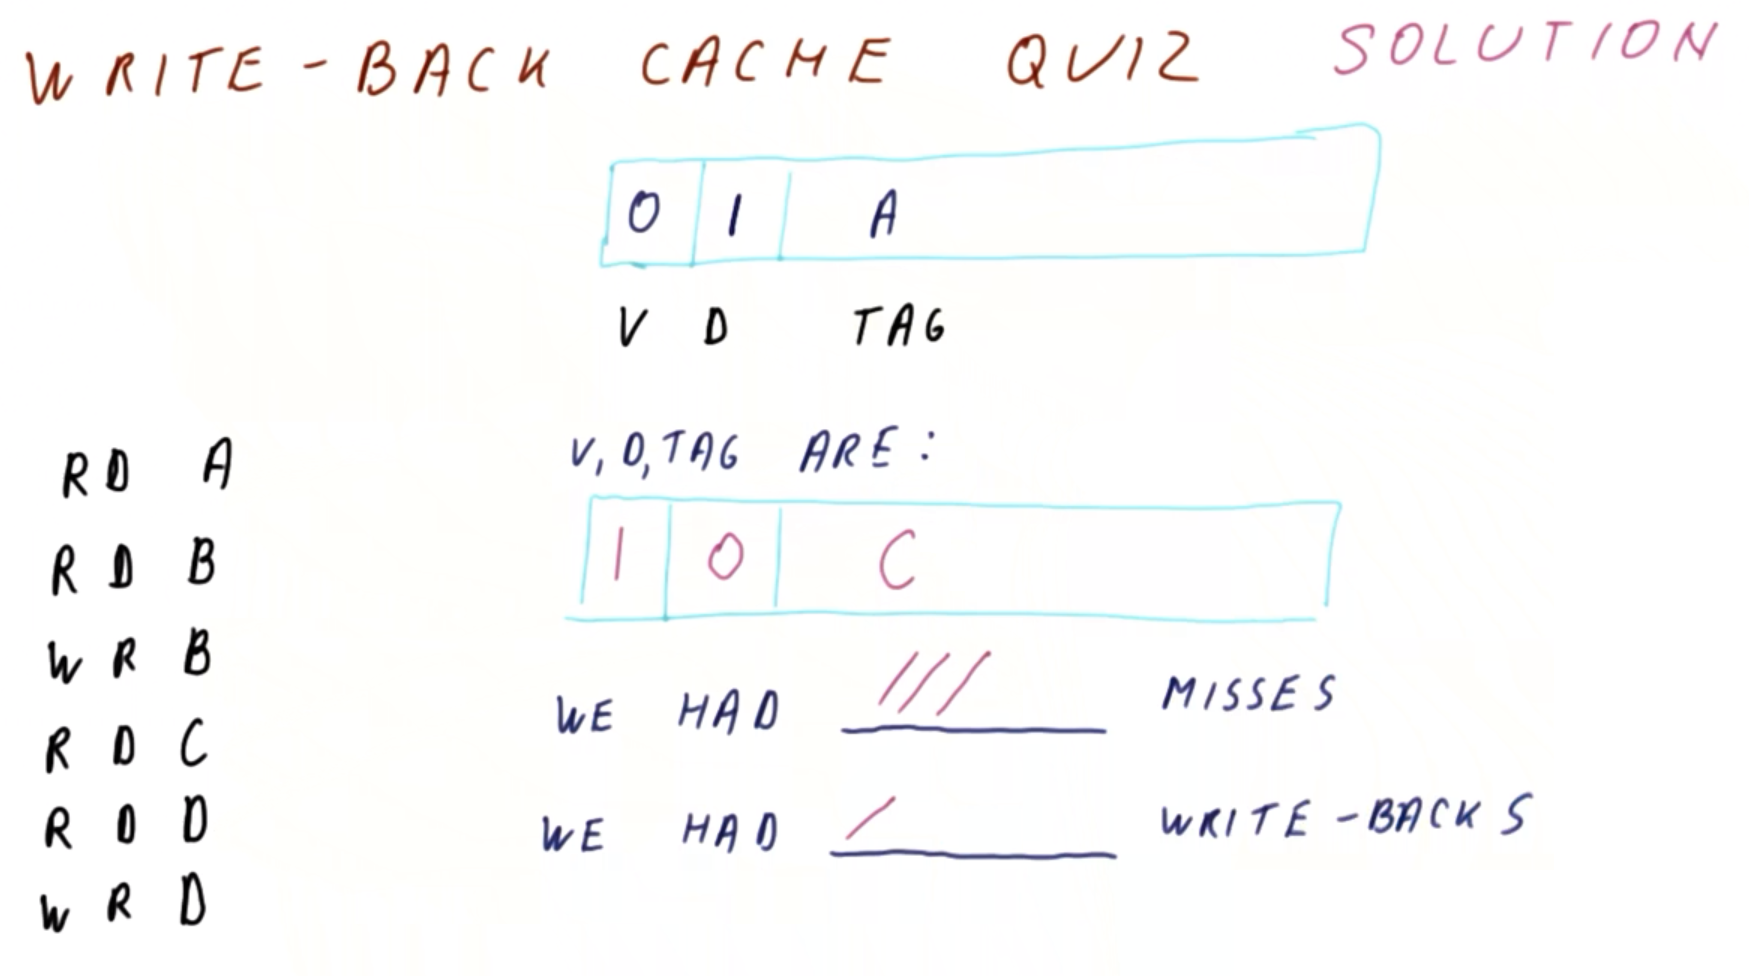 WRITE-BACK CACHE QUIZ SOLUTION
0 1 A
V D TAG
RD A
RD B
WR B
RD C
RD D
WR D
V, D, TAG ARE:
1 0 C
WE HAD /// MISSES
WE HAD / WRITE-BACKS